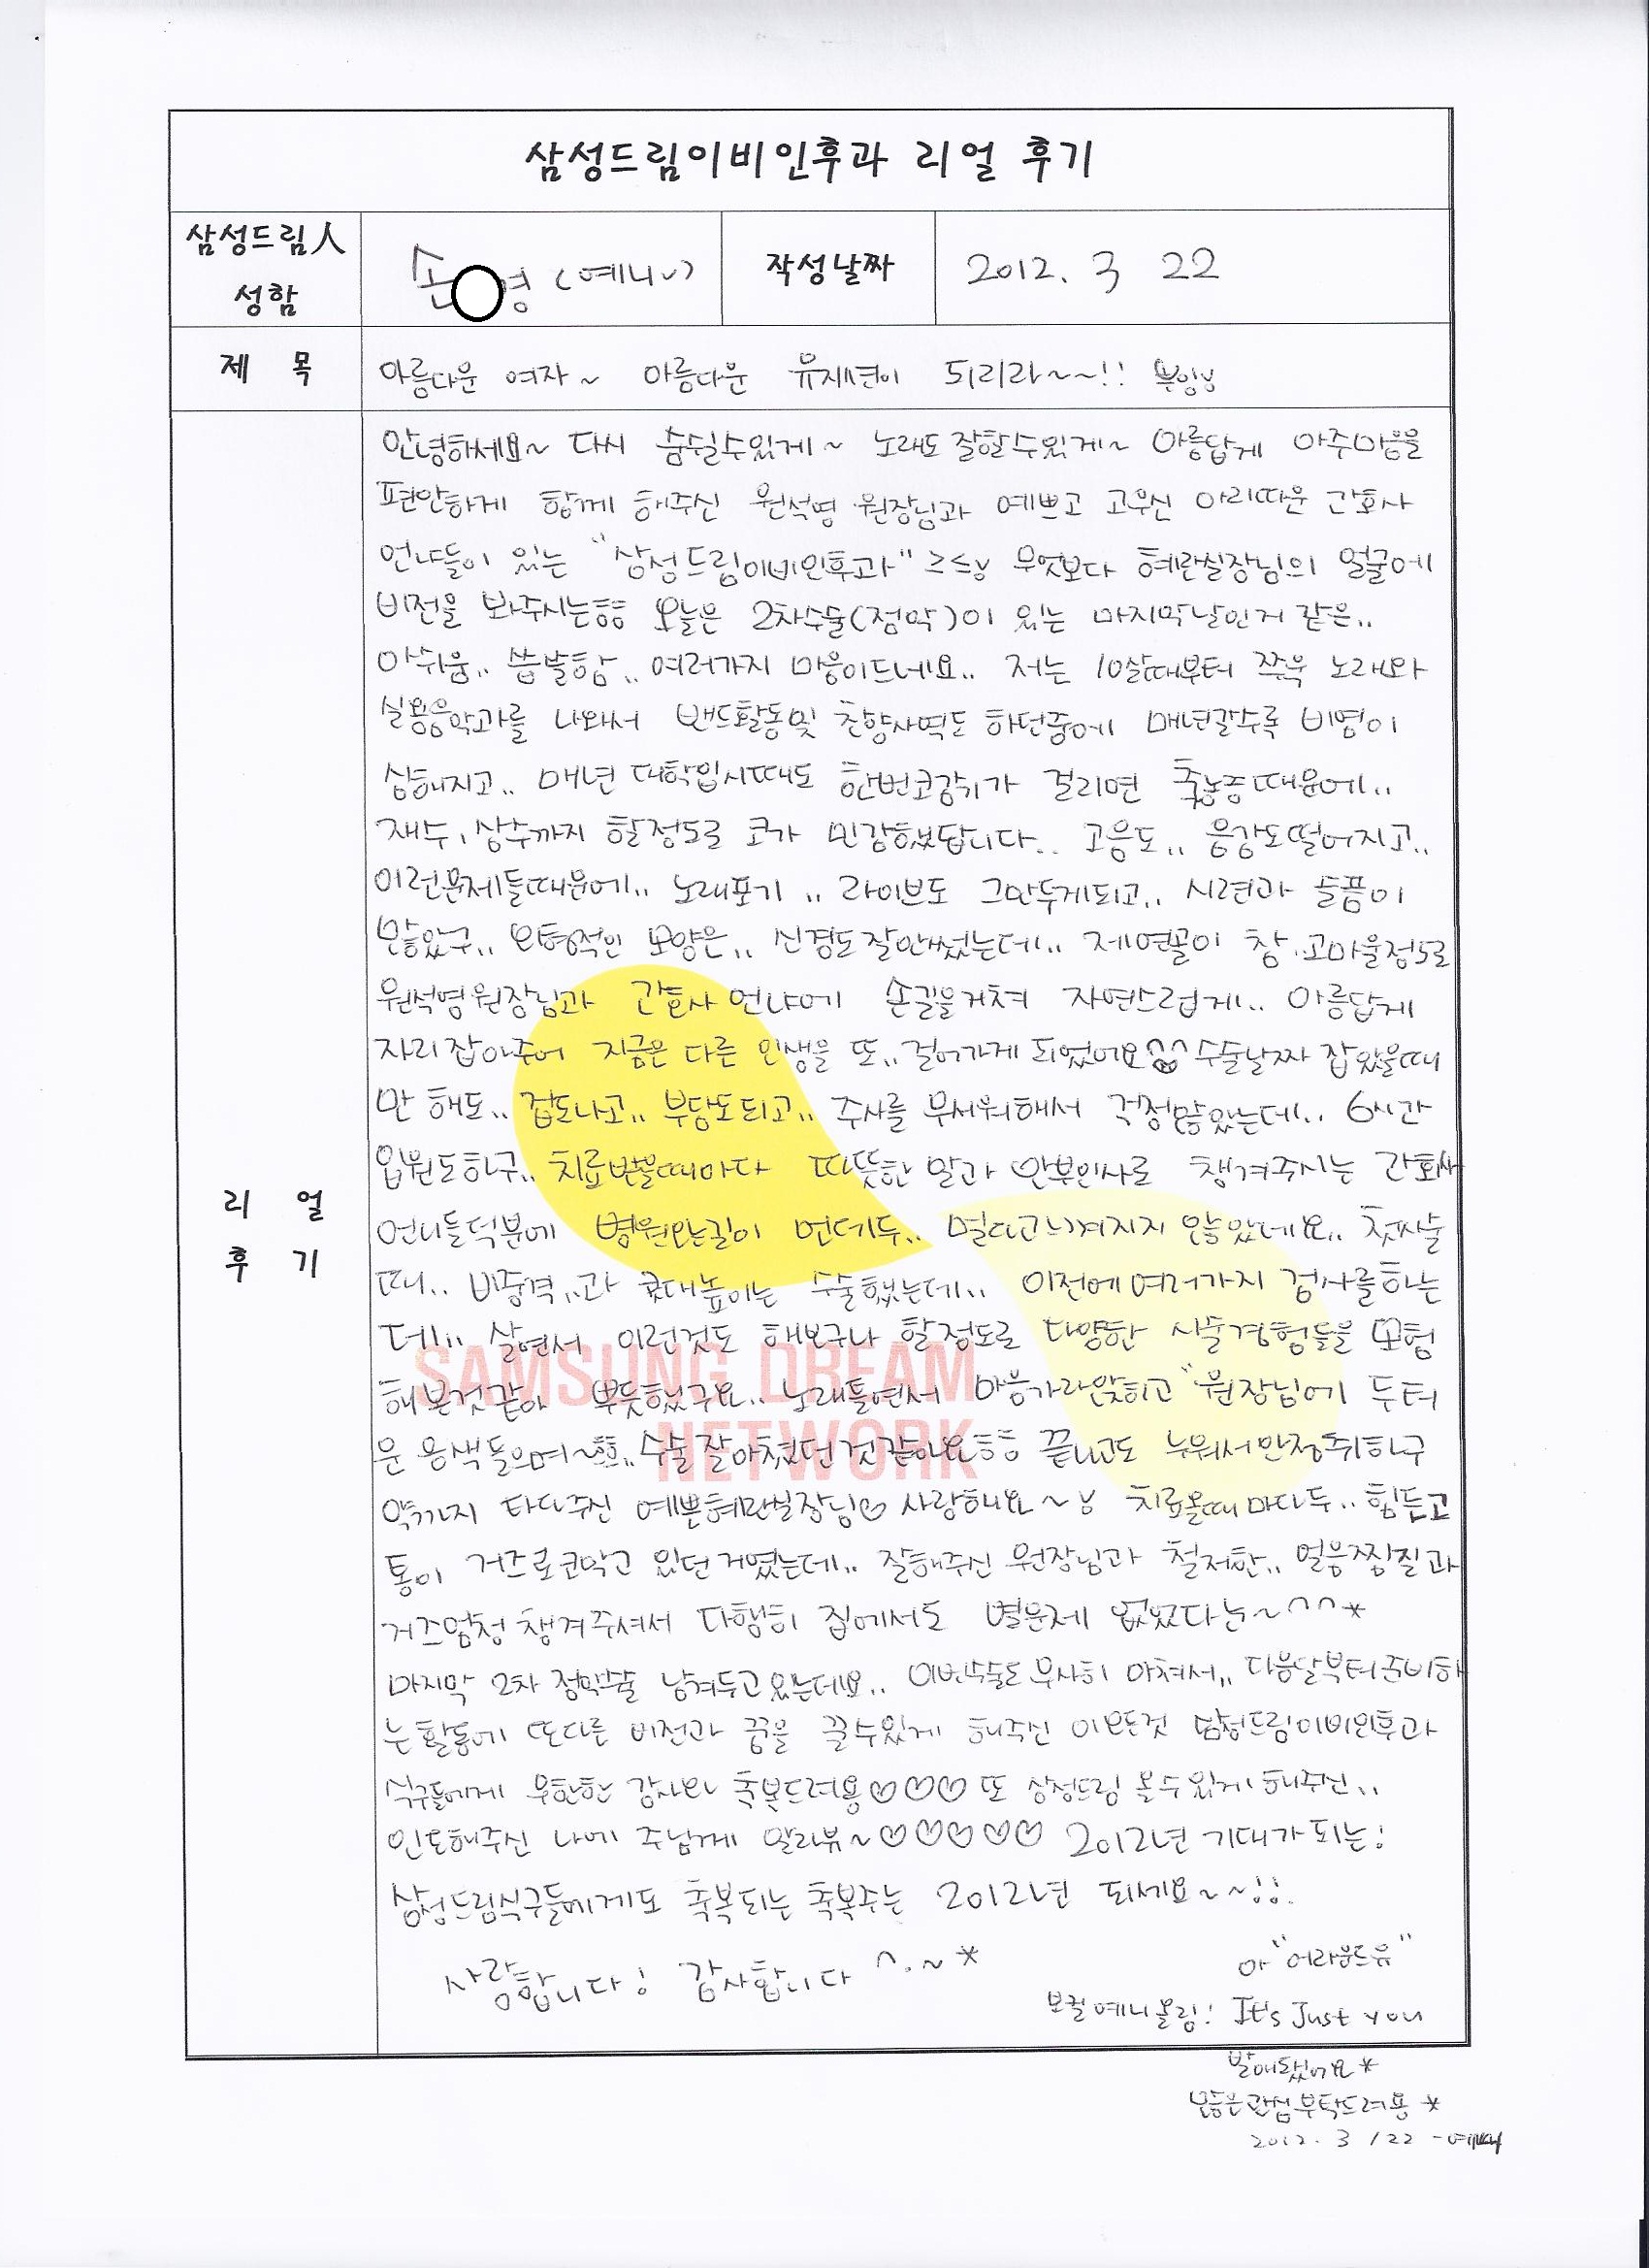 삼성드림이비인후과 리얼 후기
삼성드림人
성함
손 영 (예니)
작성날짜
2012. 3 22
제 목
아름다운 여자~ 아름다운 되리라~~!!
리 얼
후 기
안녕하세요~ 다시 숨쉴수있게~ 노래도 잘할수있게~ 아름답게 아주마음을
편안하게 함께 해주신 원석영 원장님과 예쁘고 고우신 아리따운 간호사
언냐들이 있는 "삼성드림이비인후과" 무엇보다 혜란실장님의 얼굴에
비전을 봐주시는ㅎㅎ 오늘은 2차수술(점막)이 있는 마지막날인거 같은..
아쉬움.. 씁쓸함.. 여러가지 마음이드네요.. 저는 10살때부터 쭈욱 노래와
실용음악과를 나와서 밴드활동및 찬양사역도 하던중에 매년갈수록 비염이
심해지고.. 매년 대학입시때도 한번코감기가 걸리면 축농증때문에..
재수, 삼수까지 할정도로 코가 민감했답니다.. 고음도.. 음감도떨어지고..
이런문제들때문에.. 노래포기.. 라이브도 그만두게되고.. 시련과 슬픔이
많았구.. 외형적인 모양은.. 신경도잘안썼는데.. 제연골이 참.고마울정도로
원석영원장님과 간호사 언냐에 손길을거쳐 자연스럽게.. 아름답게
자리잡아주어 지금은 다른 인생을 또.. 걸어가게 되었어요^^ 수술날짜 잡았을때
만 해도.. 겁도나고.. 부담도되고.. 주사를 무서워해서 걱정많았는데.. 6시간
입원도하구.. 치료받을때마다 따뜻한 말과 안부인사로 챙겨주시는 간호사
언니들덕분에 병원오는길이 먼데두.. 멀다고느껴지지 않았네요.. 첫수술
때.. 비중격..과 콧대높이는 수술했는데.. 이전에여러가지 검사를하는
데.. 살면서 이런것도 해보구나 할정도로 다양한 시술경험들을 모험
해본것같아 뿌듯했구요.. 노래들면서 마음가라앉히고 "원장님에 두터
운 음색들으며~ㅎㅎ.. 수술잘마쳤던것같아요ㅎㅎ 끝나고도 누워서안정취하구
약까지 타다주신 예쁜혜란실장님♡ 사랑해요~ 치료올때마다두.. 힘든고
통이 거즈로코막고 있던거였는데.. 잘해주신 원장님과 철저한.. 얼음찜질과
거즈엄청챙겨주셔서 다행히 집에서도 별문제 없었다는~^^*
마지막 2차 점막수술 남겨두고있는데요.. 이번수술도무사히 마쳐서.. 다음달부터준비하
는활동에 또다른 비전과 꿈을 꿀수있게 해주신 이모든것 삼성드림이비인후과
식구들에게 무한한 감사와 축복드려용♡♡♡ 또 삼성드림 올수있게 해주신..
인도해주신 나에 주님께 알라뷰~♡♡♡♡♡ 2012년 기대가되는!
삼성드림식구들에게도 축복되는 축복주는 2012년 되세요~~!!.
사랑합니다! 감사합니다 ^.~*
아 "어라운드유"
보컬예니올림! It's Just you
발매됐어요*
많은관심부탁드려용*
2012. 3 / 22
SAMSUNG DREAM
NETWORK